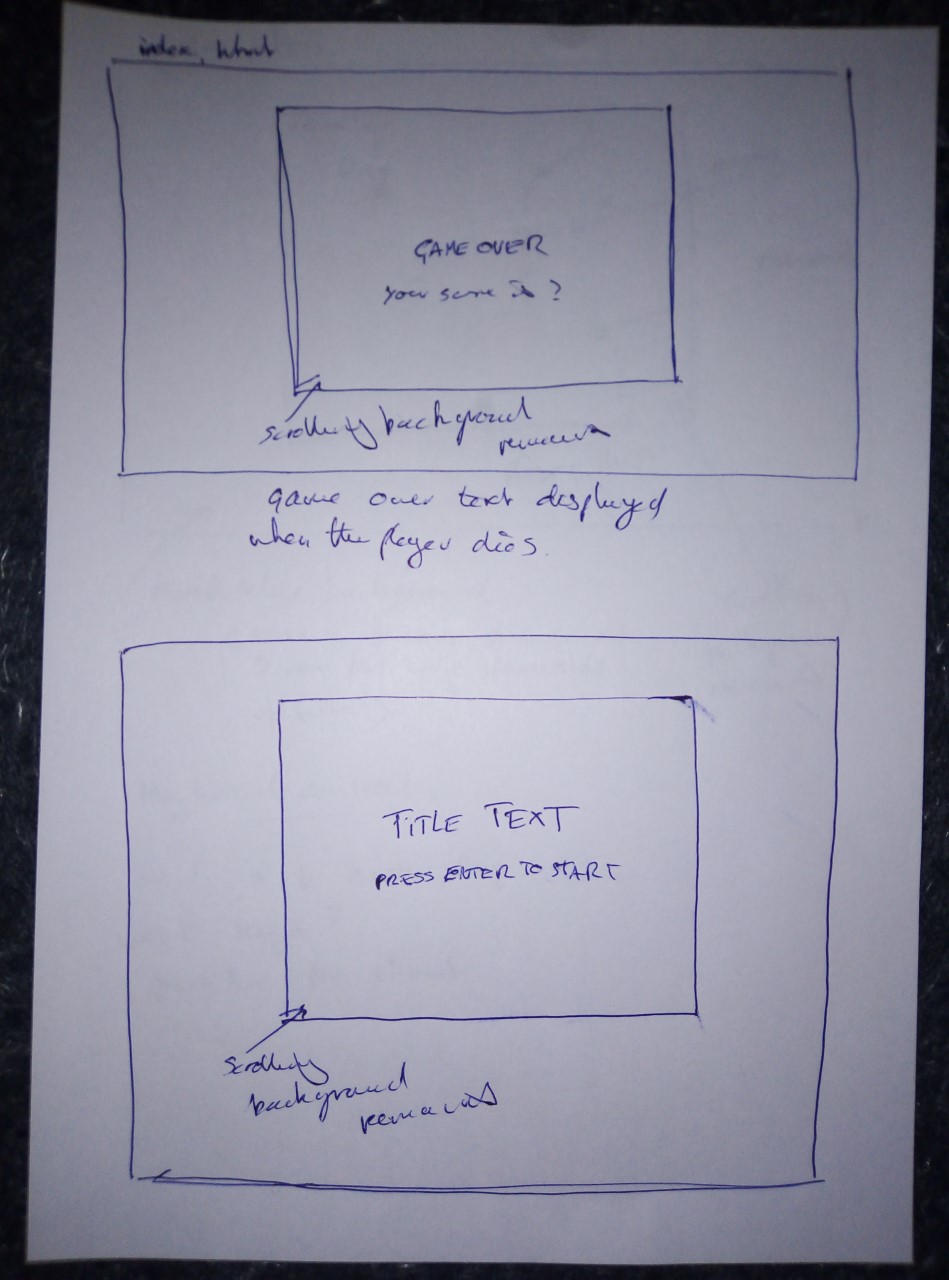 index.html
GAME OVER
your score is ?
scrolling background
remains
game over text displayed
when the player dies.
TITLE TEXT
PRESS ENTER TO START
scrolling
background
remains